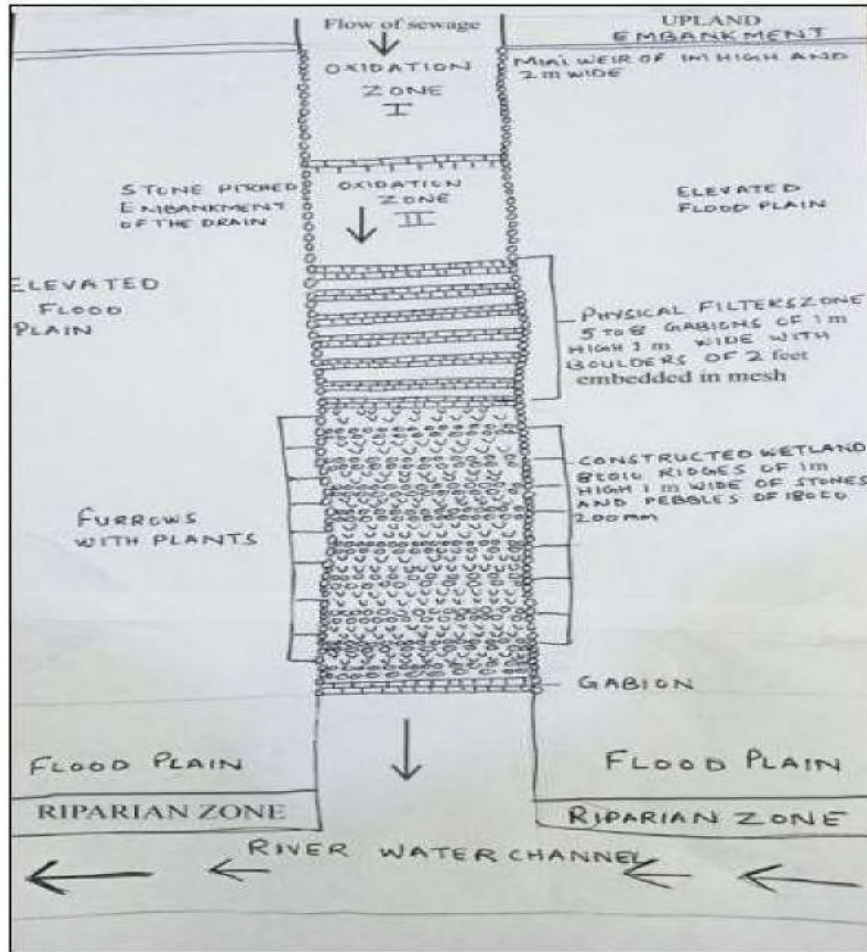 Flow of sewage
UPLAND
EMBANKMENT
OXIDATION
ZONE
I
WEIR OF 1M HIGH AND
2m WIDE
STONE PITCHED
EMBANKMENT
OF THE DRAIN
OXIDATION
ZONE
II
ELEVATED
FLOOD PLAIN
ELEVATED
FLOOD
PLAIN
PHYSICAL FILTERS ZONE
5 TO 8 GABIONS OF 1m
HIGH 1 m WIDE WITH
BOULDERS OF 2 feet
embedded in mesh
FURROWS
WITH PLANTS
CONSTRUCTED WETLAND
8 TO 10 RIDGES OF 1m
HIGH 1 m WIDE OF STONES
AND PEBBLES OF 180 TO
200 mm
GABION
FLOOD PLAIN
FLOOD PLAIN
RIPARIAN ZONE
RIPARIAN ZONE
RIVER WATER CHANNEL